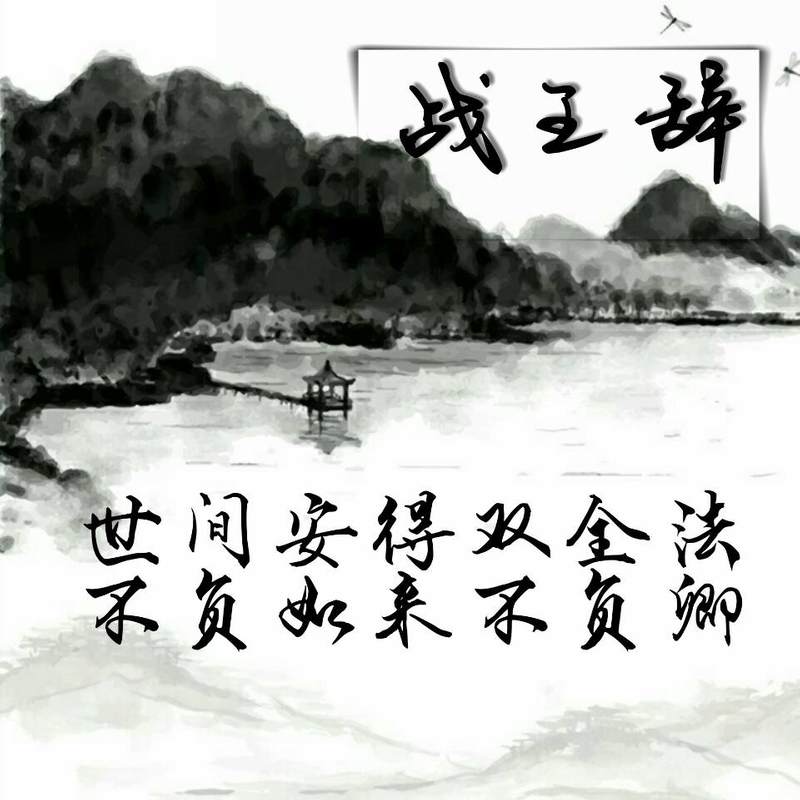 战王辞
世间安得双全法
不负如来不负卿